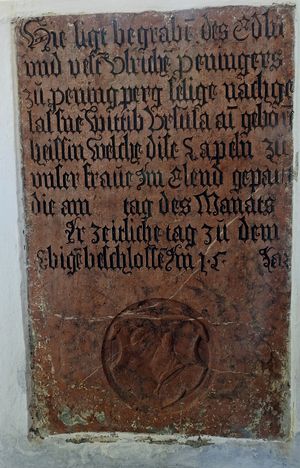 Hie ligt begrabñ des Edln
und vest Vlrichñ peningers
zu peningperg selige nachge
lassne Wittib Vrsula aũ geborñ
heissin Welche dise Capeln zu
vnser frauẽ Im Elend gepaut
die am tag des Manats
Ir zeitliche tag zu dem
Ebigẽ beschlosse Im 15